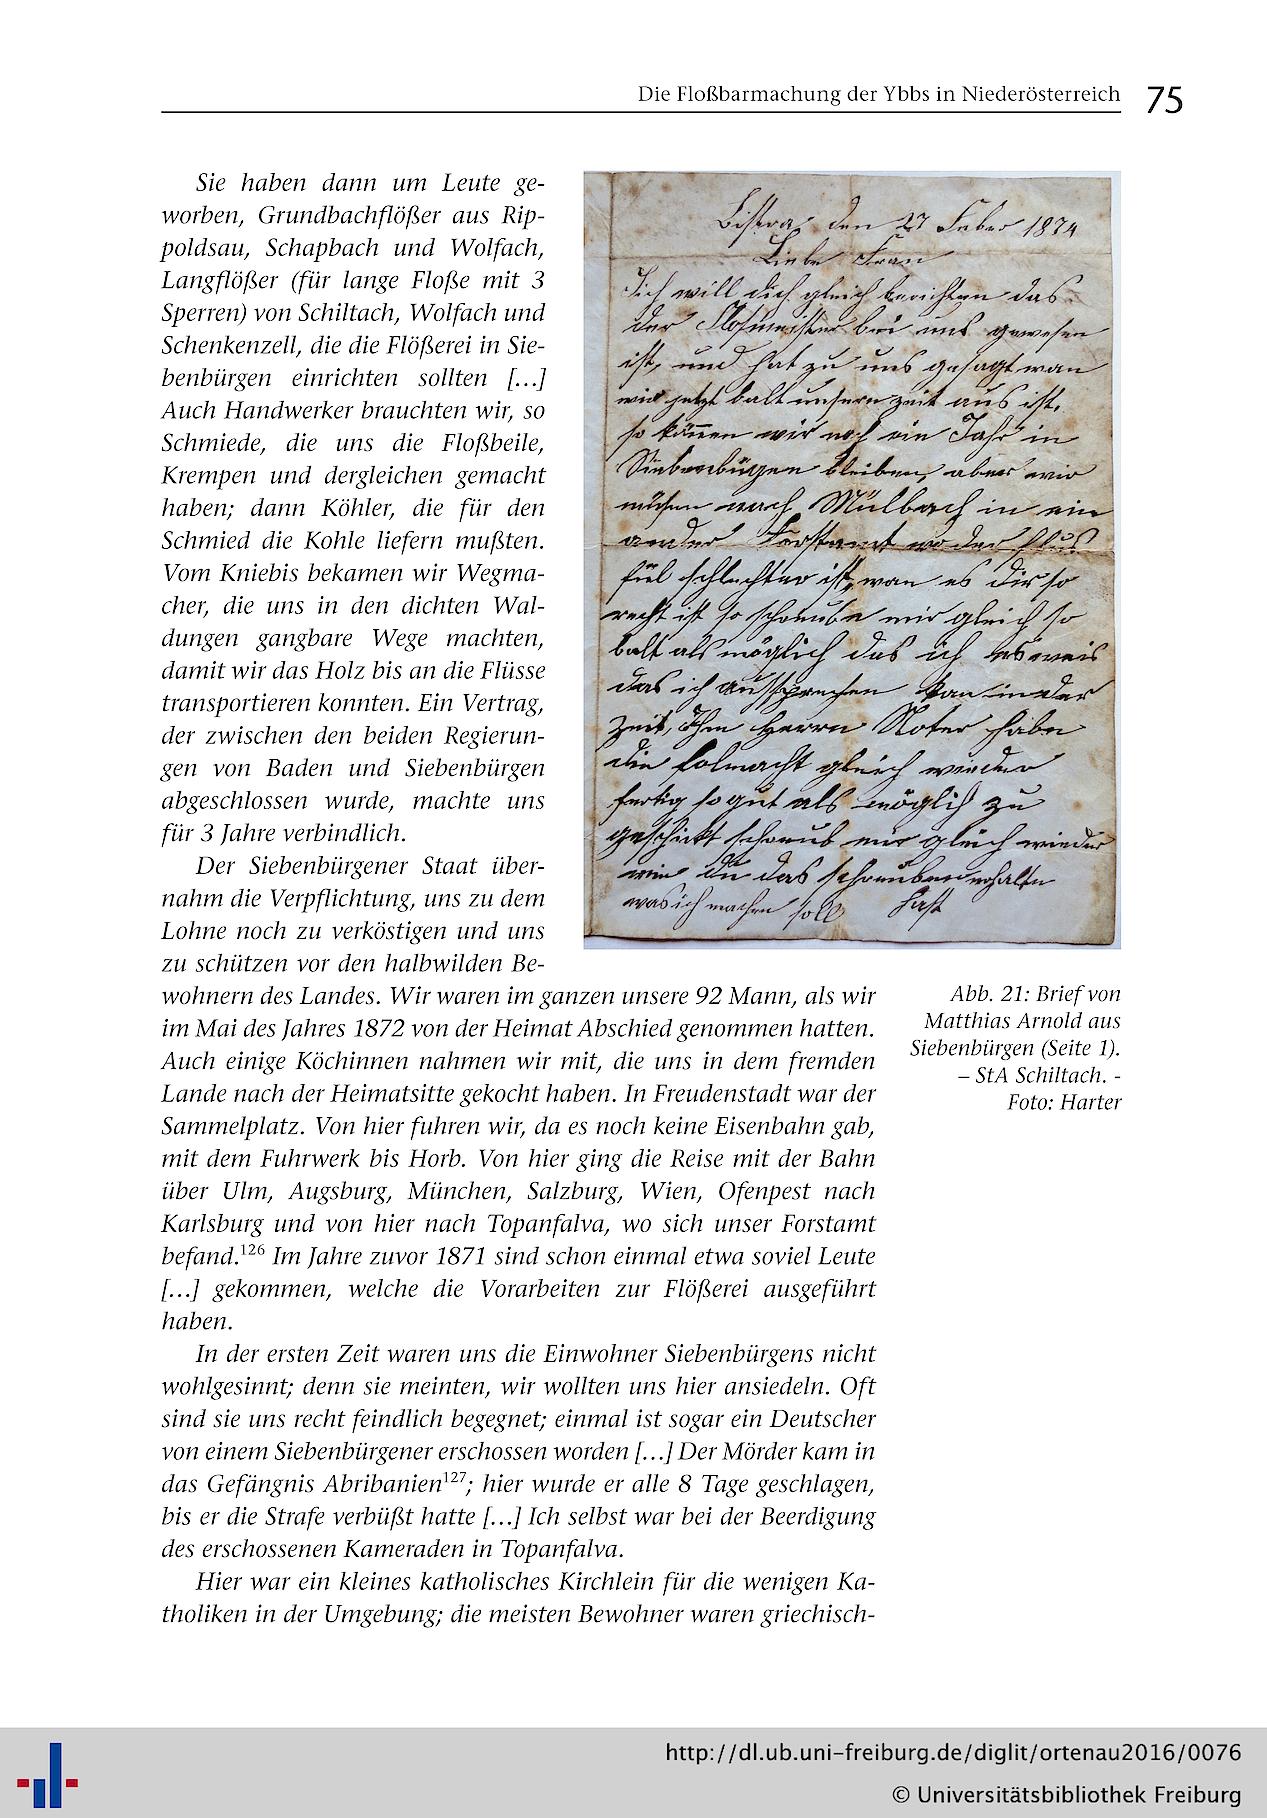 Die Floßbarmachung der Ybbs in Niederösterreich 75
Sie haben dann um Leute ge-
worben, Grundbachflößer aus Rip-
poldsau, Schapbach und Wolfach,
Langflößer (für lange Floße mit 3
Sperren) von Schiltach, Wolfach und
Schenkenzell, die die Flößerei in Sie-
benbürgen einrichten sollten […]
Auch Handwerker brauchten wir, so
Schmiede, die uns die Floßbeile,
Krempen und dergleichen gemacht
haben; dann Köhler, die für den
Schmied die Kohle liefern mußten.
Vom Kniebis bekamen wir Wegma-
cher, die uns in den dichten Wal-
dungen gangbare Wege machten,
damit wir das Holz bis an die Flüsse
transportieren konnten. Ein Vertrag,
der zwischen den beiden Regierun-
gen von Baden und Siebenbürgen
abgeschlossen wurde, machte uns
für 3 Jahre verbindlich.
Der Siebenbürgener Staat über-
nahm die Verpflichtung, uns zu dem
Lohne noch zu verköstigen und uns
zu schützen vor den halbwilden Be-
wohnern des Landes. Wir waren im ganzen unsere 92 Mann, als wir
im Mai des Jahres 1872 von der Heimat Abschied genommen hatten.
Auch einige Köchinnen nahmen wir mit, die uns in dem fremden
Lande nach der Heimatsitte gekocht haben. In Freudenstadt war der
Sammelplatz. Von hier fuhren wir, da es noch keine Eisenbahn gab,
mit dem Fuhrwerk bis Horb. Von hier ging die Reise mit der Bahn
über Ulm, Augsburg, München, Salzburg, Wien, Ofenpest nach
Karlsburg und von hier nach Topanfalva, wo sich unser Forstamt
befand.126 Im Jahre zuvor 1871 sind schon einmal etwa soviel Leute
[…] gekommen, welche die Vorarbeiten zur Flößerei ausgeführt
haben.
In der ersten Zeit waren uns die Einwohner Siebenbürgens nicht
wohlgesinnt; denn sie meinten, wir wollten uns hier ansiedeln. Oft
sind sie uns recht feindlich begegnet; einmal ist sogar ein Deutscher
von einem Siebenbürgener erschossen worden […] Der Mörder kam in
das Gefängnis Abribanien127; hier wurde er alle 8 Tage geschlagen,
bis er die Strafe verbüßt hatte […] Ich selbst war bei der Beerdigung
des erschossenen Kameraden in Topanfalva.
Hier war ein kleines katholisches Kirchlein für die wenigen Ka-
tholiken in der Umgebung; die meisten Bewohner waren griechisch-
Bistra den 27 Feber 1874
Liebe Frau
Ich will dich gleich berichten das
der Flosmeister bei uns gewesen
ist, und hat zu uns gesagt wan
wir jetzt balt unsere zeit aus ist,
so können wir noch ein Jahr in
Siebenbügen bleiben, aber wir
müsen nach Mülbach in ein
ander Forstamt wo der flus
fiel schlechter ist, wan es dir so
recht ist so schreube mir gleich so
balt als möglich das ich es weis
das ich aussprechen kan in der
zeit, Ihm Herrn Noter habe
die folmacht gleich wieder
fertig so gut als möglich zu
geschickt schreub mir gleich wieder
wie du das schreuben erhalten
was ich machen soll hast
Abb. 21: Brief von
Matthias Arnold aus
Siebenbürgen (Seite 1).
– StA Schiltach. -
Foto: Harter
http://dl.ub.uni-freiburg.de/diglit/ortenau2016/0076
© Universitätsbibliothek Freiburg